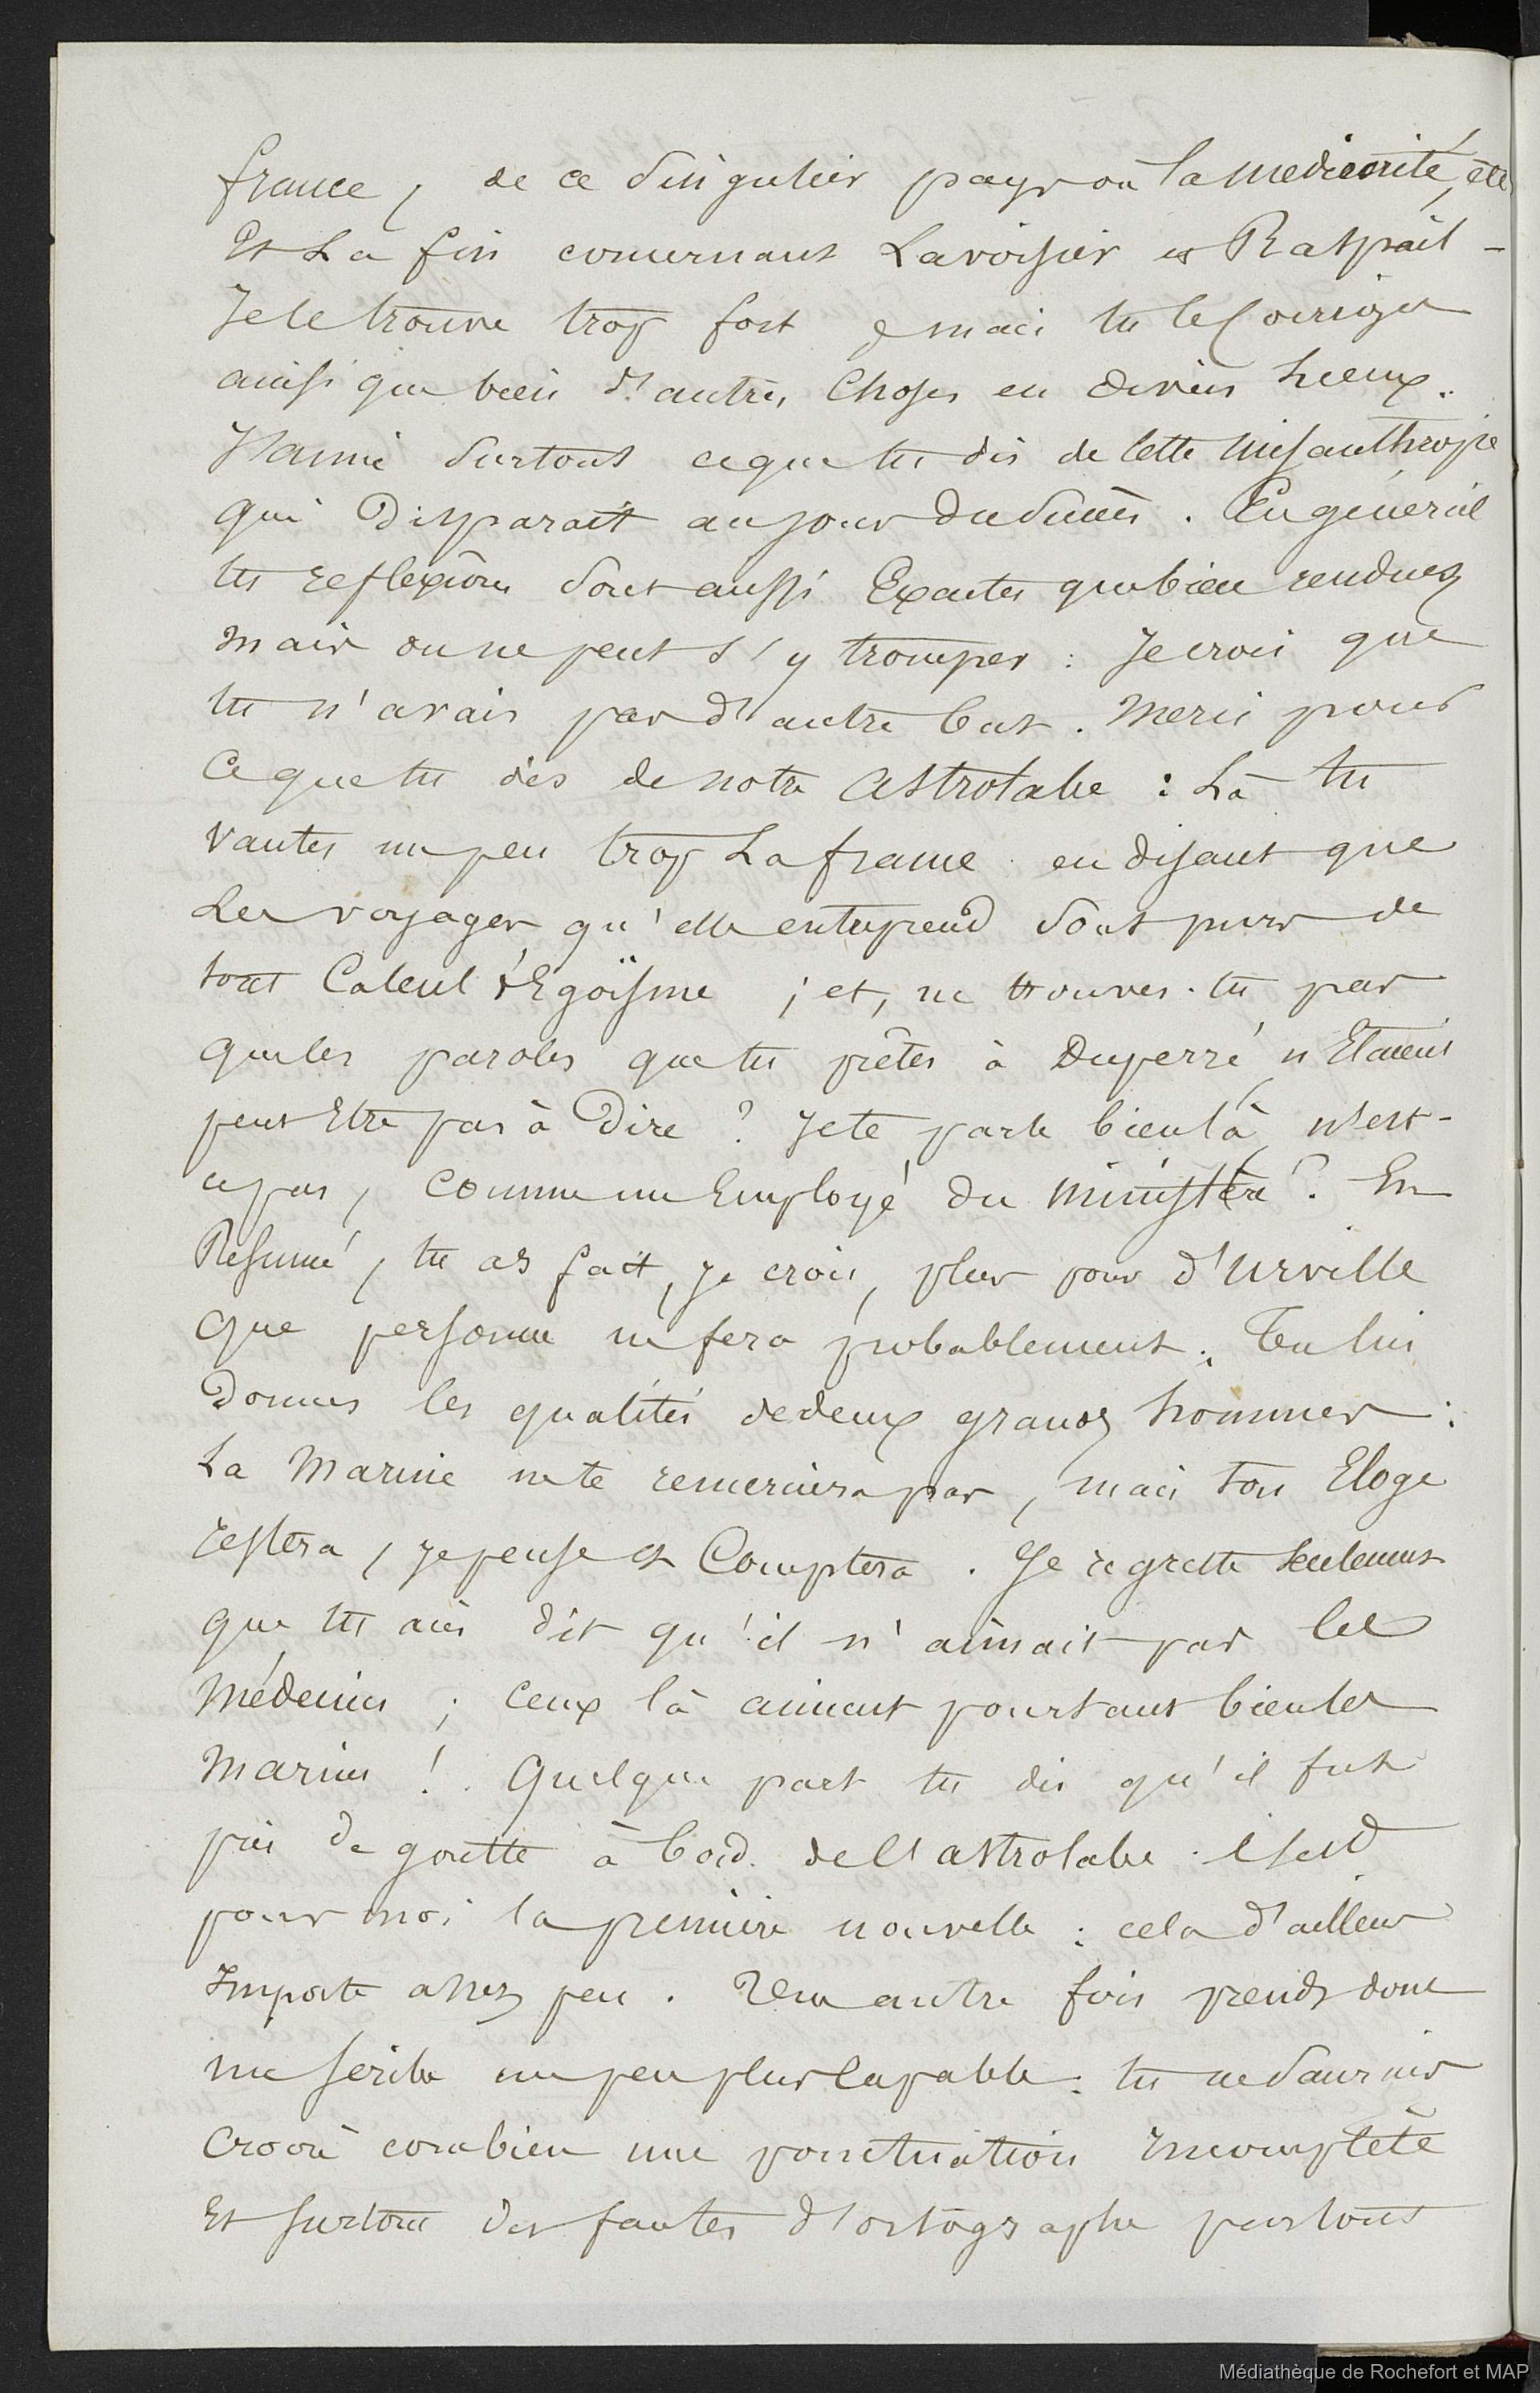 france, de ce singulier pays où la mediocrité, etc
Et La fin concernant Lavoisier et Raspail -
Je le trouve trop fort mais tu le Corriges
ainsi que bien d'autres Choses en divers lieux.
J'aime surtout ce que tu dis de cette misanthropie
qui Disparait au jour du succès. En général
tes reflexions sont aussi Exactes que bien rendues
mais on ne peut s'y tromper : Je crois que
tu n'avais pas d'autre but. Merci pour
Ce que tu dis de notre Astrolabe : Là tu
Vantes un peu trop La france en disant que
Les voyages qu'elle entreprend sont purs de
tout Calcul d'Egoïsme ; et, ne trouves-tu pas
que les paroles que tu prêtes à Duperré n'Etaient
peut Etre pas à Dire ? Je te parle bien là, n'est-
ce pas, comme un Employé du ministère ? En
Resumé, tu as fait, je crois, plus pour d'Urville
que personne ne fera probablement. Tu lui
Donnes les qualités de deux grands hommes :
La Marine ne te remerciera pas, mais ton Eloge
restera, je pense et Comptera. Je regrette seulement
que tu aies dit qu'il n'aimait pas les
Médecins ; Ceux là aiment pourtant bien les
Marins ! Quelque part tu dis qu'il fut
pris de goutte à bord de l'astrolabe. C'est
pour moi la première nouvelle : cela d'ailleurs
Importe assez peu. Une autre fois prends donc
un scribe un peu plus Capable : tu ne saurais
Croire combien une ponctuation Incomplète
Et surtout des fautes d'ortographe partout
Médiathèque de Rochefort et MAP